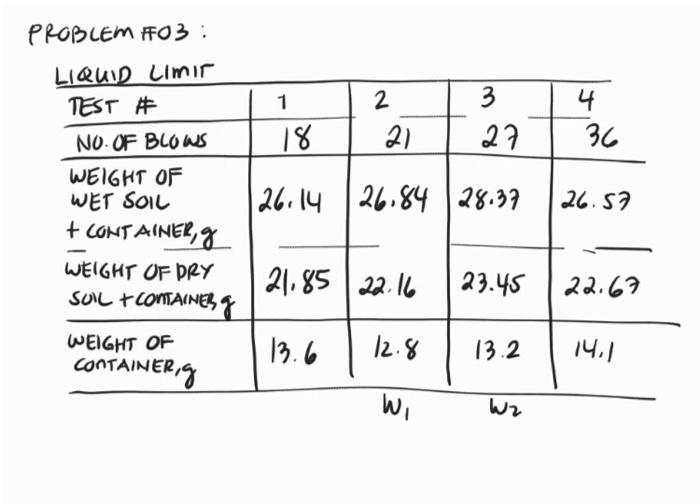 PROBLEM #03:
LIQUID LIMIT
TEST # 1 2 3 4
NO. OF BLOWS 18 21 27 36
WEIGHT OF
WET SOIL 26.14 26.84 28.37 26.57
+ CONTAINER, g
WEIGHT OF DRY 21.85 22.16 23.45 22.67
SOIL + CONTAINER, g
WEIGHT OF 13.6 12.8 13.2 14.1
CONTAINER, g
W1 W2